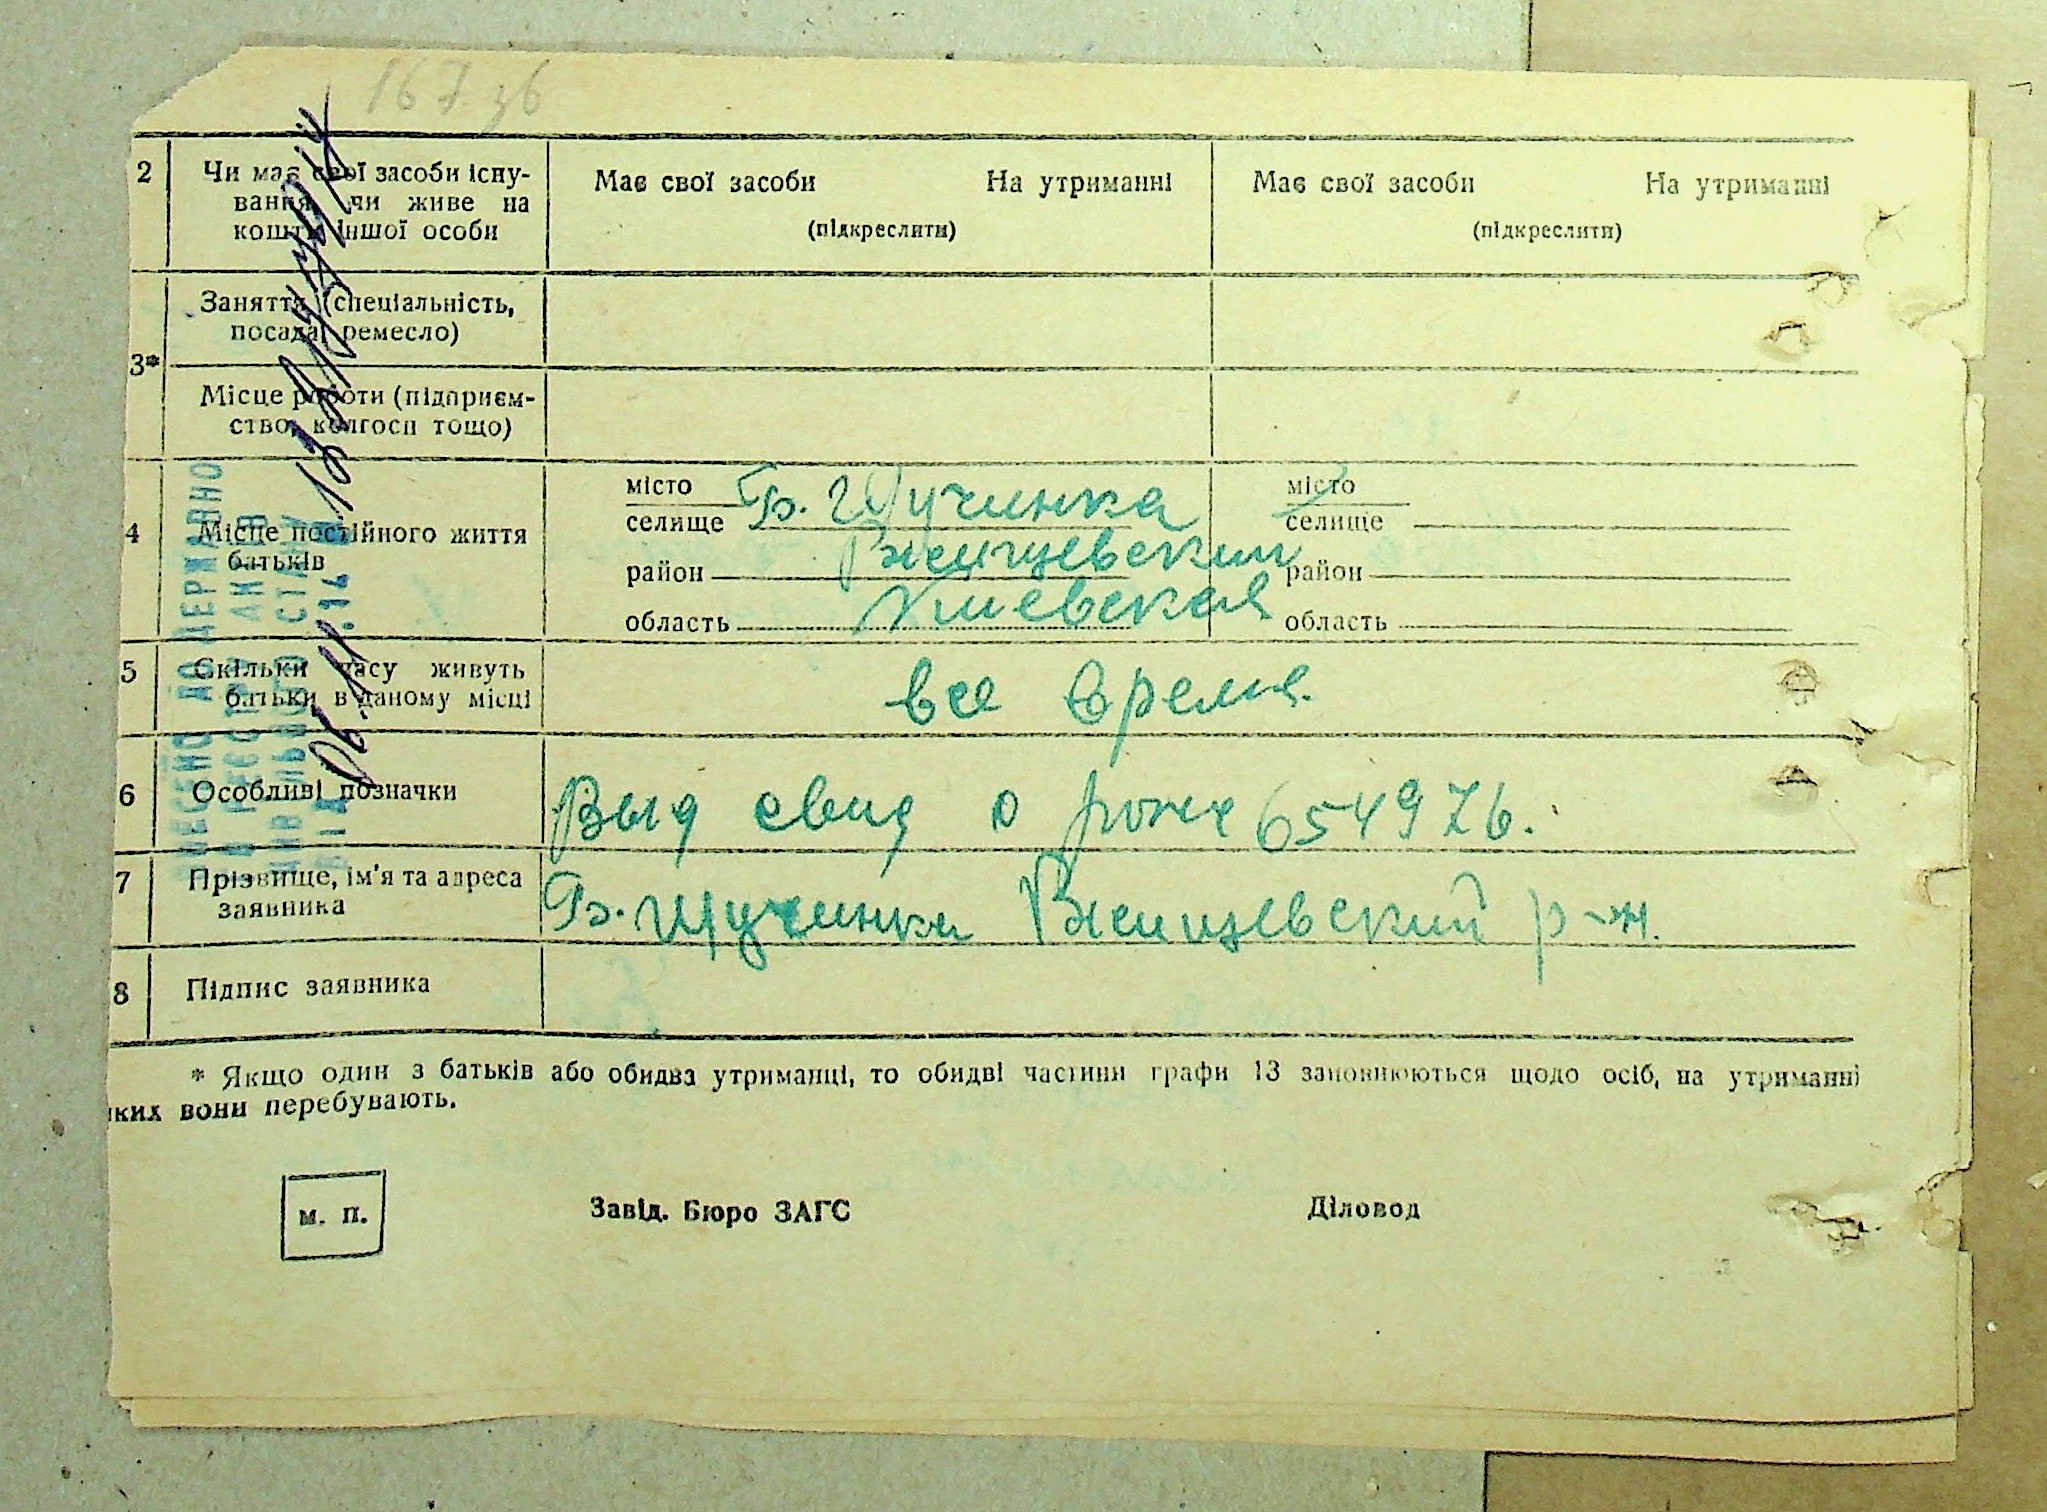 167 зб
2 Чи має свої засоби існу-
вання, чи живе на
кошти іншої особи
Має свої засоби На утриманні
(підкреслити)
Має свої засоби На утриманні
(підкреслити)
3*
Заняття (спеціальність,
посада, ремесло)
Місце роботи (підприєм-
ство, колгосп тощо)
4 Місце постійного життя
батьків
місто
селище Б. Щучинка
район Ржищевский
область Киевская
місто
селище
район
область
5 Скільки часу живуть
батьки в даному місці
все время.
6 Особливі позначки
Выд свид о рожд 654976.
7 Прізвище, ім'я та адреса
заявника
Б. Щучинка Ржищевский р-н.
8 Підпис заявника
* Якщо один з батьків або обидва утриманці, то обидві частини графи 13 заповнюються щодо осіб, на утриманні
яких вони перебувають.
м. п.
Завід. Бюро ЗАГС
Діловод
ВНЕСЕНО ДО ДЕРЖАВНО
СТАН
06.11.14